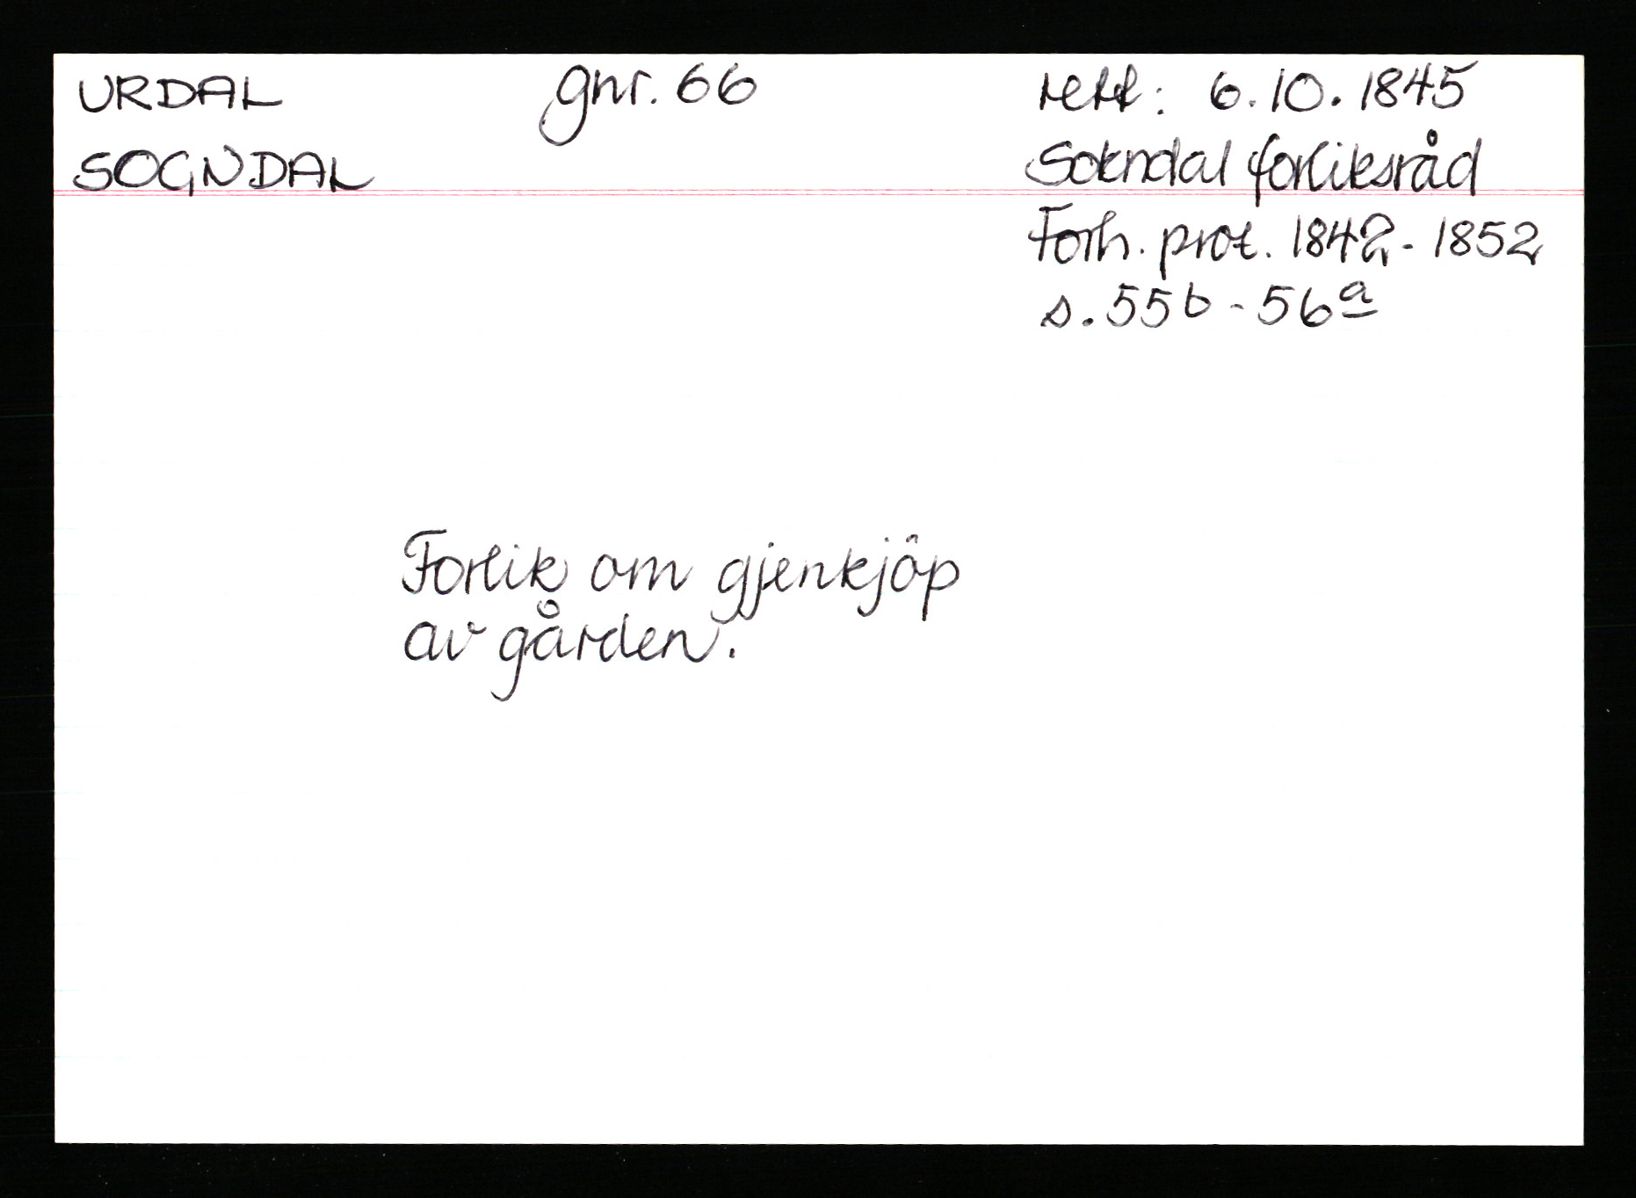 URDAL gnr. 66 rett: 6.10.1845
SOGNDAL Sokndal forliksråd
Forh. prot. 1842-1852
s. 55b-56a
Forlik om gjenkjöp
av gården.